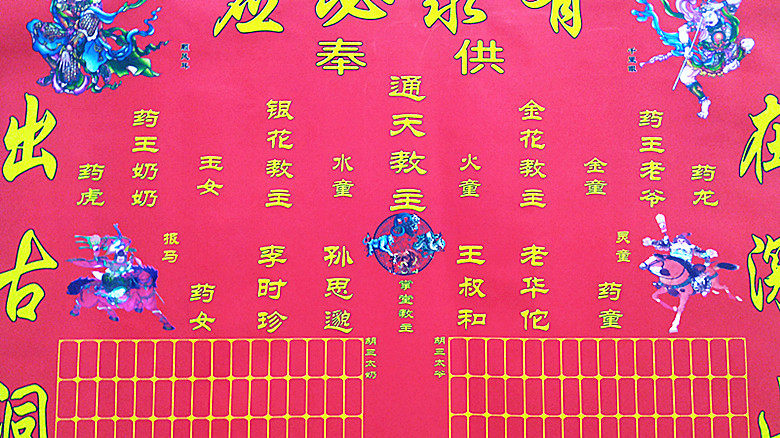 有求必应
供奉
在深山
千里眼
顺风耳
药龙
药王老爷
金童
金花教主
火童
通天教主
水童
银花教主
玉女
药王奶奶
药虎
灵童
药童
老华佗
王叔和
掌堂教主
孙思邈
李时珍
药女
报马
胡三太爷
胡三太奶
出古洞